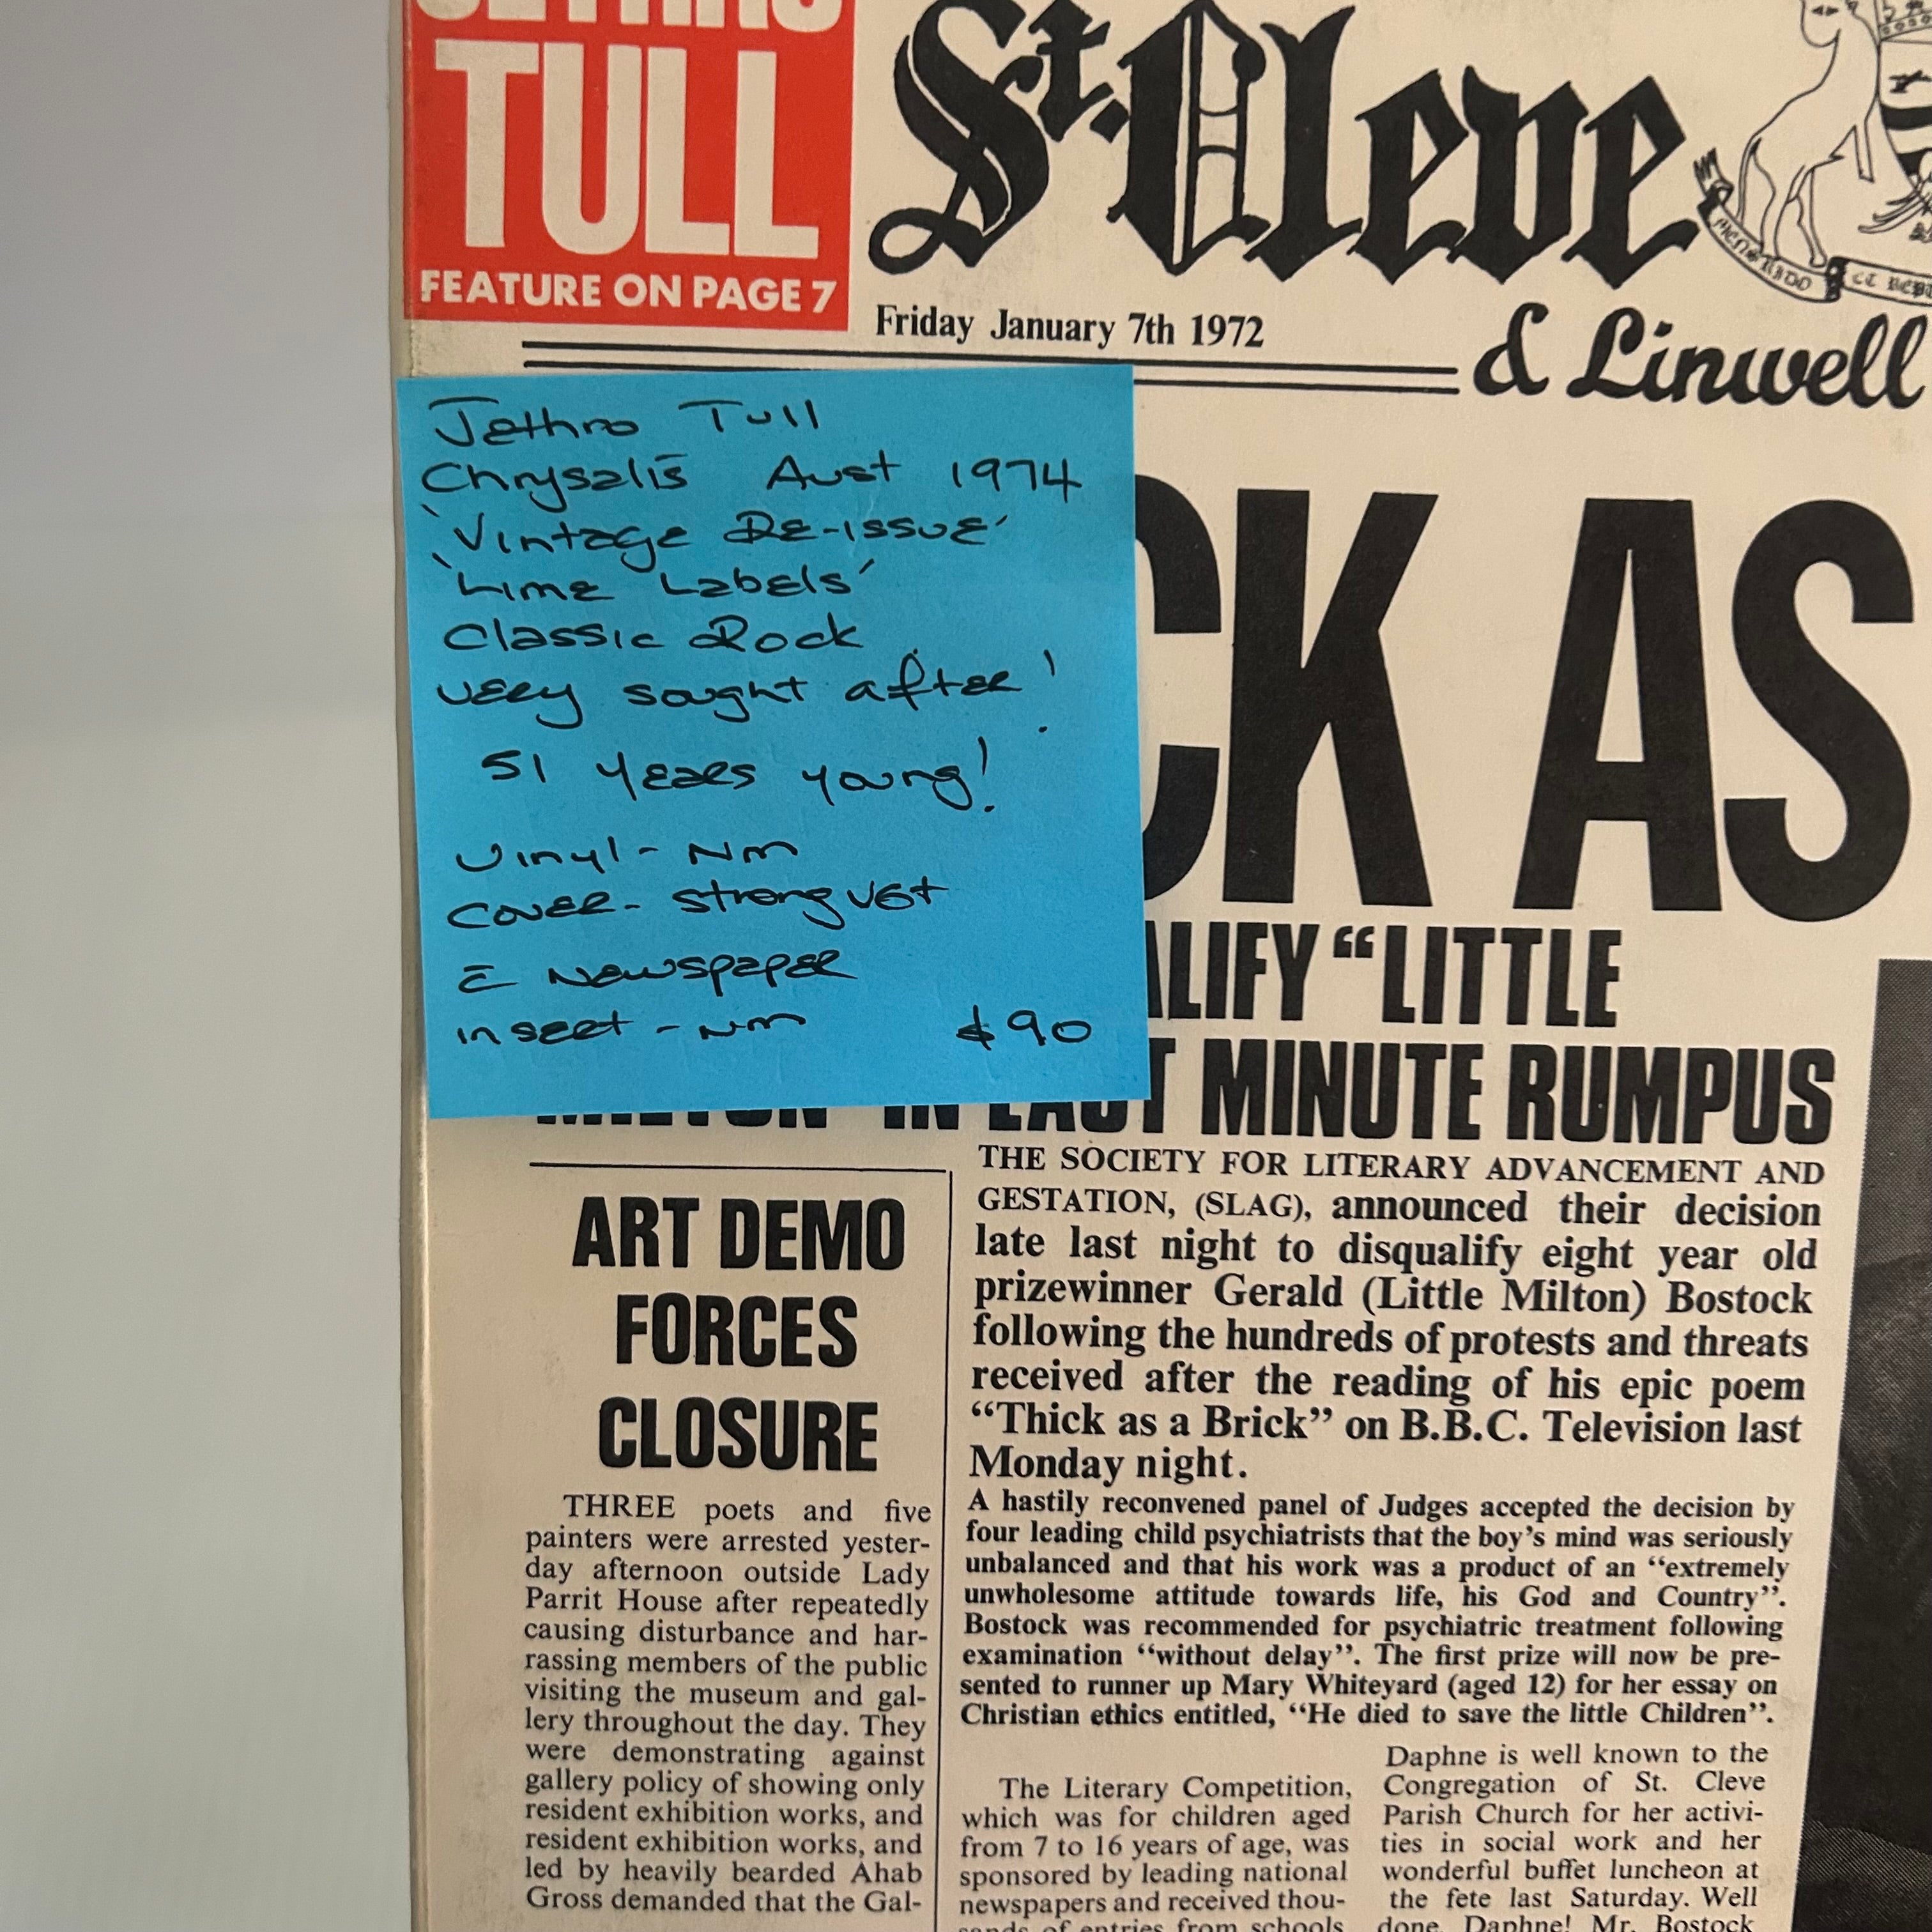 JETHRO
TULL
FEATURE ON PAGE 7
St. Cleve
Friday January 7th 1972
& Linwell
Jethro Tull
Chrysalis Aust 1974
'Vintage Re-issue'
'Lime Labels'
Classic Rock
very sought after!
51 years young!
Vinyl - NM
Cover - strong VG+
c̄ Newspaper
insert - NM $90
CK AS
ALIFY “LITTLE
MILTON” IN LAST MINUTE RUMPUS
ART DEMO
FORCES
CLOSURE
THREE poets and five
painters were arrested yester-
day afternoon outside Lady
Parrit House after repeatedly
causing disturbance and har-
rassing members of the public
visiting the museum and gal-
lery throughout the day. They
were demonstrating against
gallery policy of showing only
resident exhibition works, and
resident exhibition works, and
led by heavily bearded Ahab
Gross demanded that the Gal-
THE SOCIETY FOR LITERARY ADVANCEMENT AND
GESTATION, (SLAG), announced their decision
late last night to disqualify eight year old
prizewinner Gerald (Little Milton) Bostock
following the hundreds of protests and threats
received after the reading of his epic poem
“Thick as a Brick” on B.B.C. Television last
Monday night.
A hastily reconvened panel of Judges accepted the decision by
four leading child psychiatrists that the boy’s mind was seriously
unbalanced and that his work was a product of an “extremely
unwholesome attitude towards life, his God and Country”.
Bostock was recommended for psychiatric treatment following
examination “without delay”. The first prize will now be pre-
sented to runner up Mary Whiteyard (aged 12) for her essay on
Christian ethics entitled, “He died to save the little Children”.
The Literary Competition,
which was for children aged
from 7 to 16 years of age, was
sponsored by leading national
newspapers and received thou-
sands of entries from schools
Daphne is well known to the
Congregation of St. Cleve
Parish Church for her activi-
ties in social work and her
wonderful buffet luncheon at
the fete last Saturday. Well
done, Daphne! Mr. Bostock